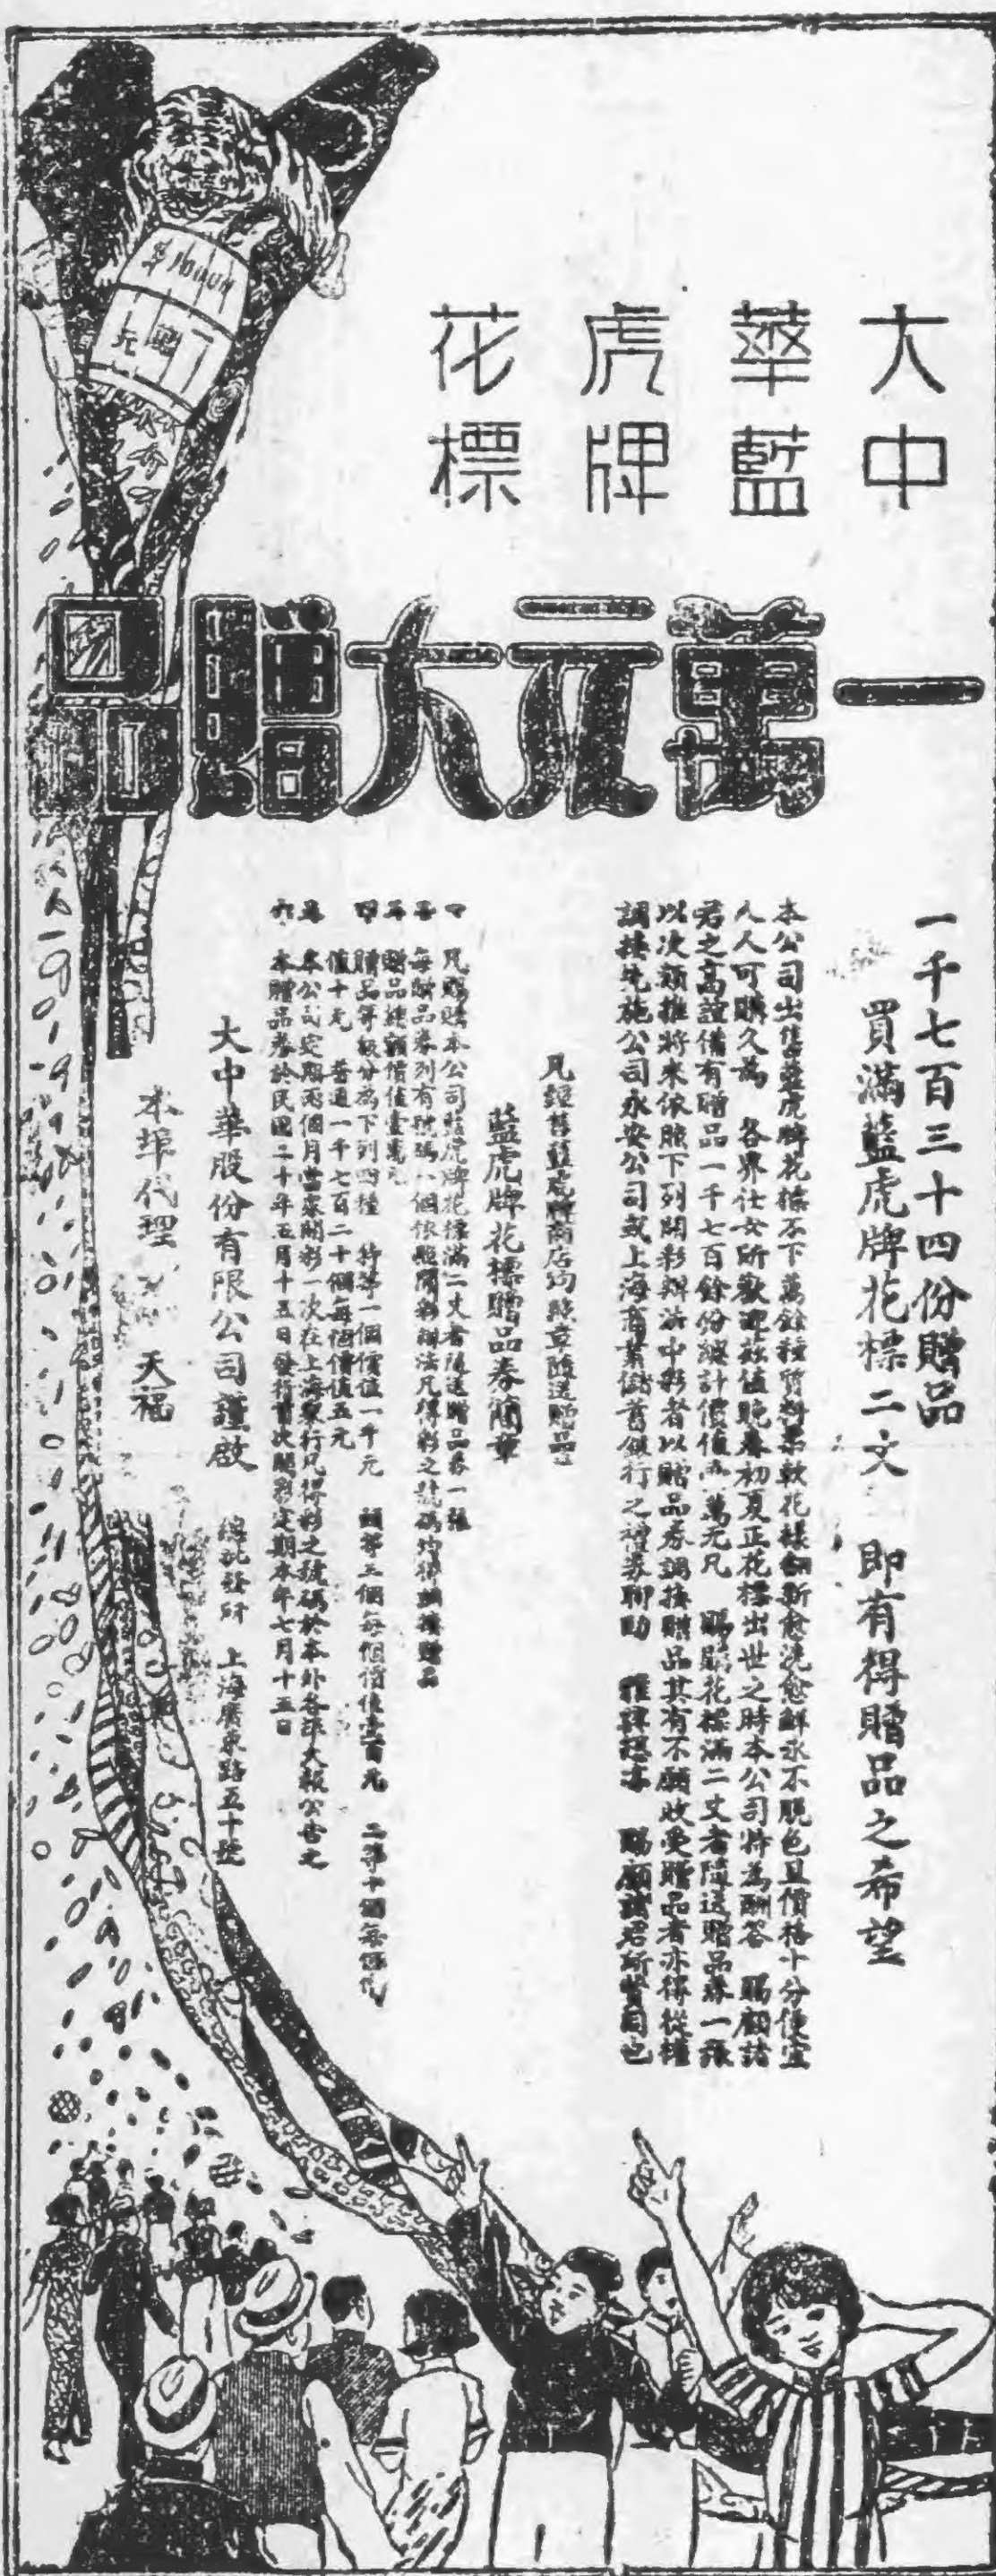 大中
華藍
虎牌
花標
一萬元大贈品
一千七百三十四份贈品
買滿藍虎牌花標二丈 即有得贈品之希望
本公司出售藍虎牌花標不下萬餘種質料柔軟花樣翻新愈洗愈鮮永不脫色且價格十分便宜
人人可購久為 各界仕女所歡迎茲值晚春初夏正花標出世之時本公司特為酬答 賜顧諸
君之高誼備有贈品一千七百餘份總計價值萬元凡 賜購花標滿二丈者隨送贈品券一張
以次類推將來依照下列開彩辦法中彩者以贈品券調換贈品其有不願收受贈品者亦得從權
調換先施公司永安公司或上海商業儲蓄銀行之禮券聊助 雅興想亦 賜顧諸君所贊同也
凡經售藍虎牌商店均照章隨送贈品
藍虎牌花標贈品券簡章
凡賜購本公司藍虎牌花標滿二丈者隨送贈品券一張
每贈品券列有號碼一個依照開彩辦法凡得彩之號碼均得調換贈品
贈品總額價值壹萬元
贈品等級分為下列四種 特等一個價值一千元 頭等三個每個價值壹百元 二等十個每個價
值十元 普通一千七百二十個每個價值五元
本公司定期兩個月當眾開彩一次在上海舉行凡得彩之號碼於本外各埠大報公告之
六 本贈品券於民國二十年五月十五日發行首次開彩定期本年七月十五日
大中華股份有限公司謹啟 總批發所 上海廣東路五十號
本埠代理 天福